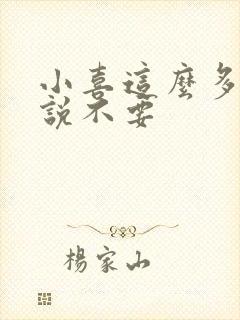 小喜這麼多
說不要
楊家山